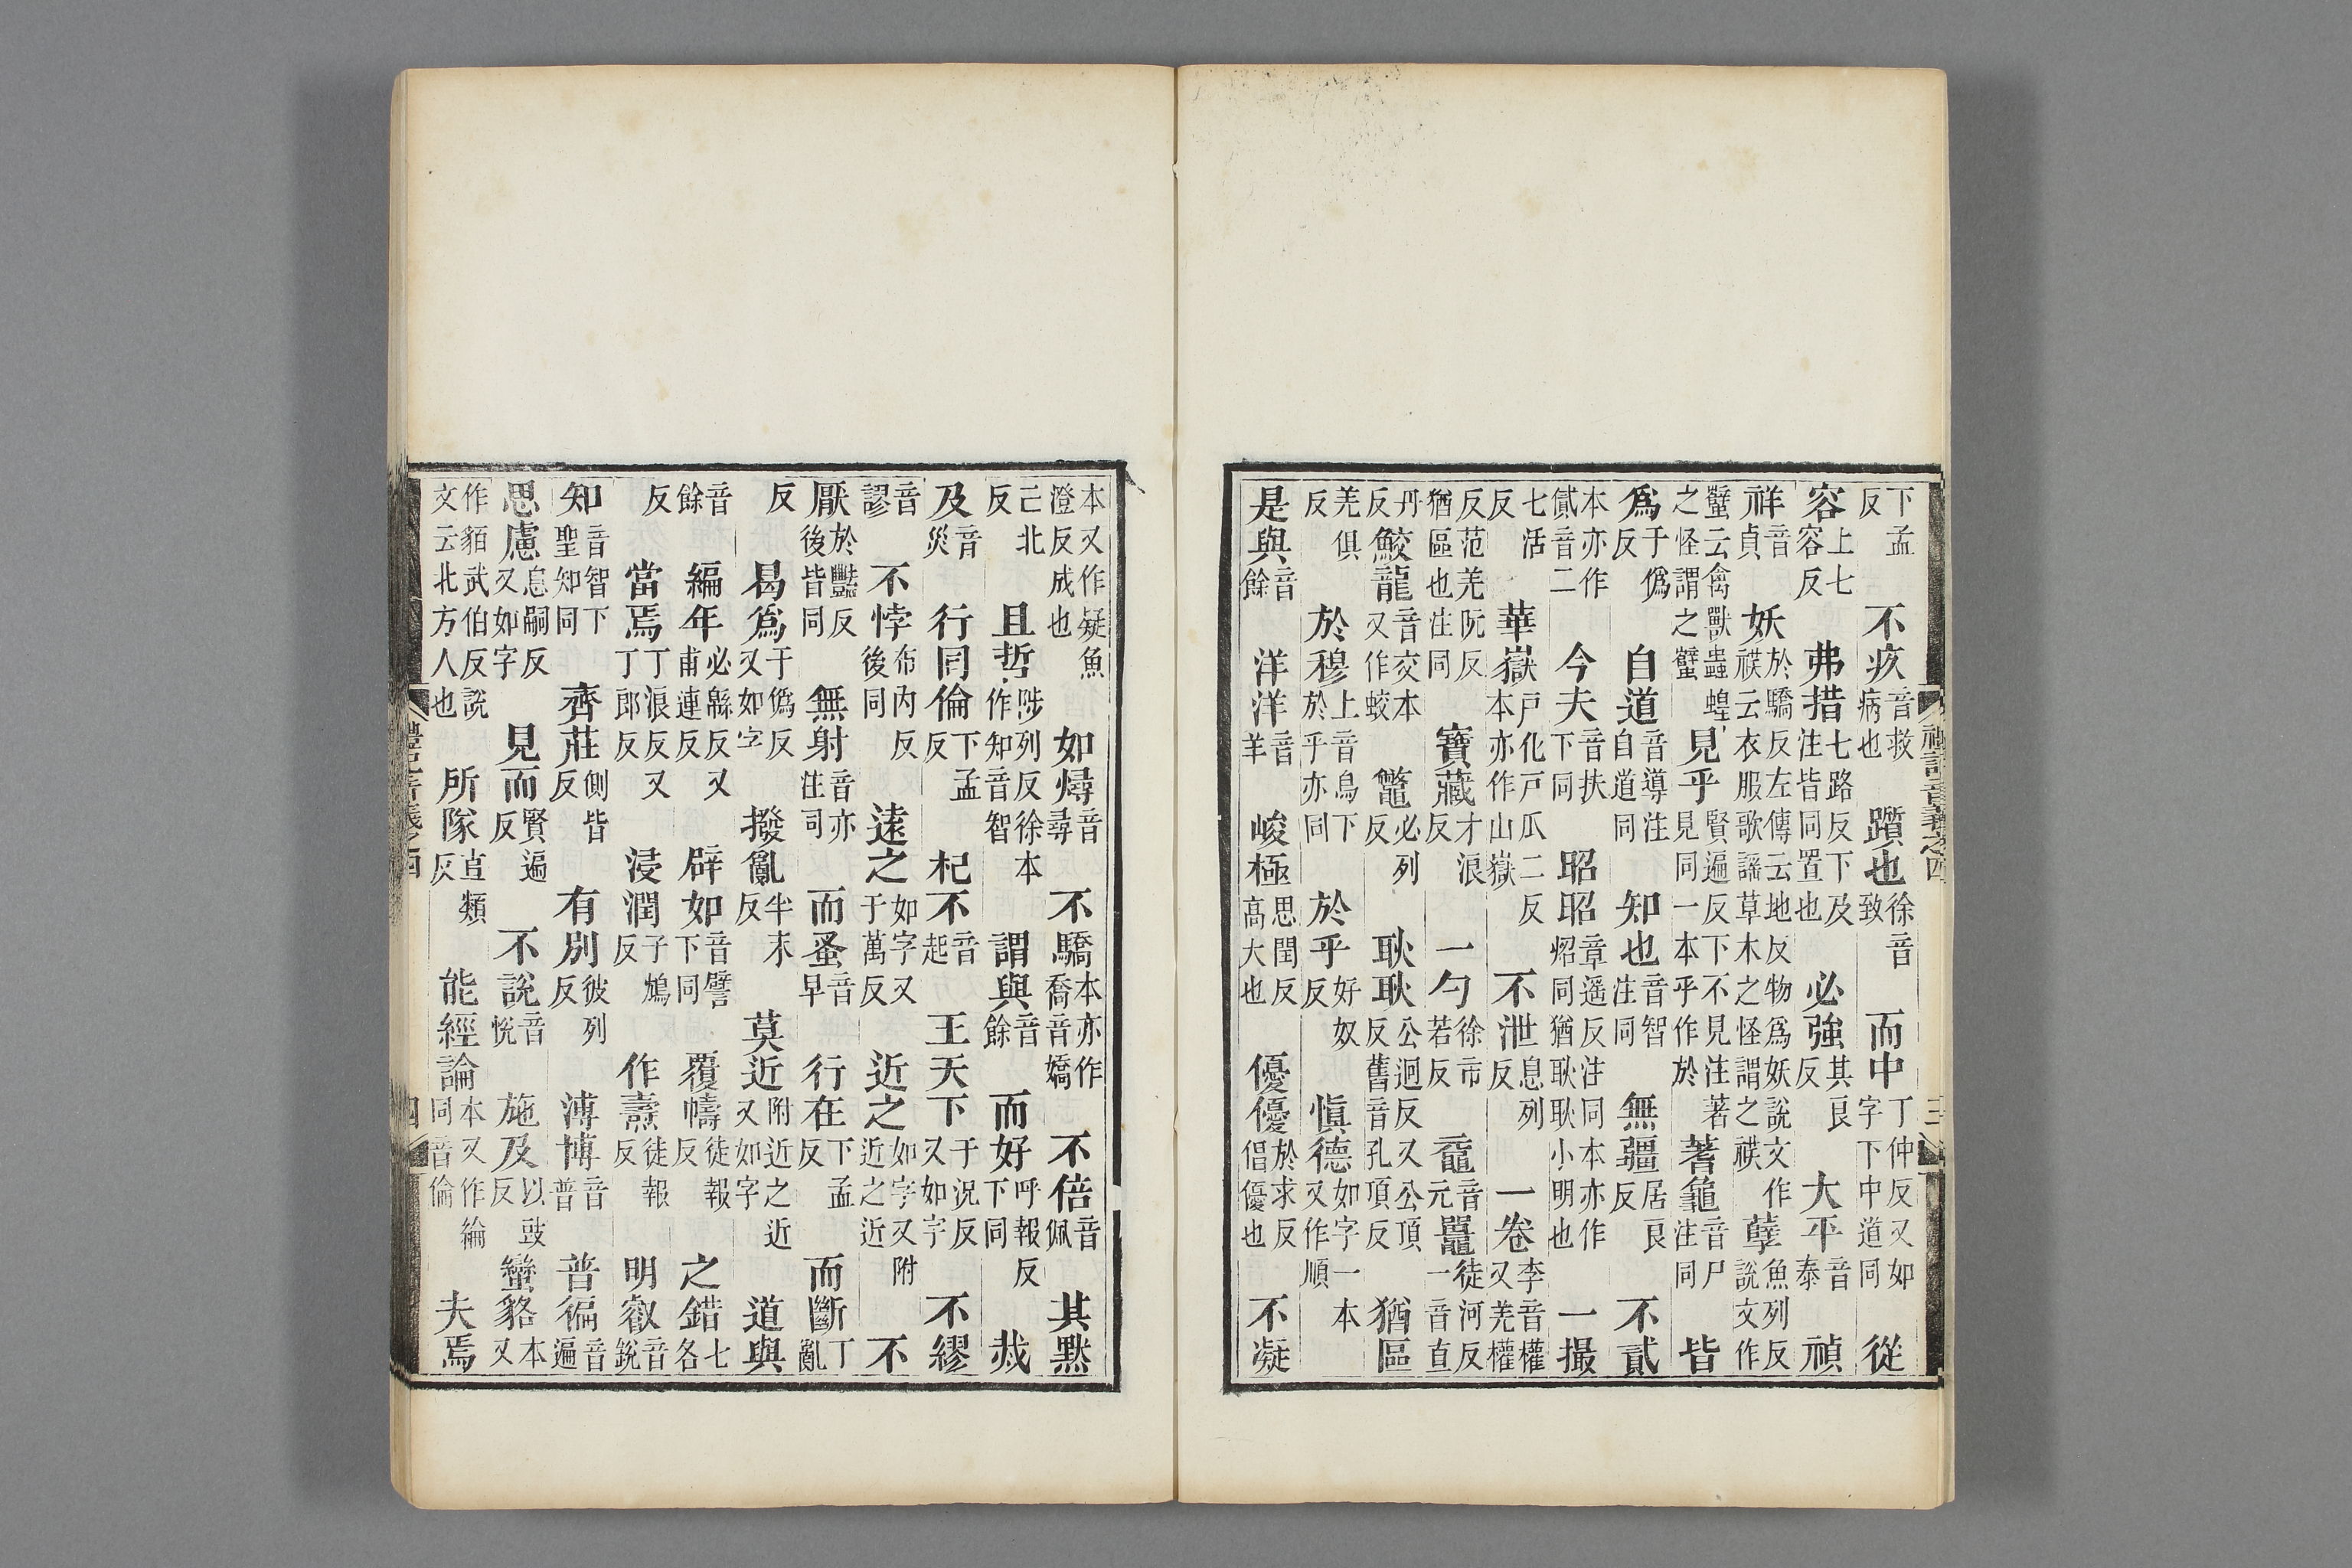 下孟反 不疚音救病也 躓也徐音致 而中丁仲反又如字下中道同 從
容上七容反 弗措七路反下及注皆同置也 必強其良反 大平音泰 禎
祥音貞 妖於驕反左傳云地反物爲妖說文作祅云衣服歌謡草木之怪謂之祅 孽魚列反說文作
蠥云禽獸蟲蝗之怪謂之蠥 見乎賢遍反下不見注見同一本乎作於 著龜音尸注同 皆
爲于僞反 自道音導注自道同 知也音智注同 無疆居良反 不貳
本亦作貳音二 今夫音扶下同 昭昭章遥反注同本亦作炤同猶耿耿小明也 一撮
七活反 華嶽戸化戸瓜二反本亦作山嶽 不泄息列反 一卷李音權又羌權
反范羌阮反猶區也注同 寶藏才浪反 一勺徐市若反 黿音元 鼉徒河反一音直
丹反 鮫龍音交本又作蛟 鼈必列反 耿耿公迥反又公頂反舊音孔頂反 猶區
羌俱反 於穆上音烏下於乎亦同 於乎好奴反 愼德如字一本又作順
是與音餘 洋洋音羊 峻極思閏反高大也 優優於求反倡優也 不凝
本又作疑魚澄反成也 如燖音尋 不驕本亦作喬音嬌 不倍音佩 其默
亡北反 且哲陟列反徐本作知音智 謂與音餘 而好呼報反下同 烖
及音災 行同倫下孟反 杞不音起 王天下于況反又如字 不繆
音謬 不悖布内反後同 遠之如字又于萬反 近之如字又附近之近 不
厭於豔反後皆同 無射音亦注司 而蚤音早 行在下孟反 而斷丁亂
反 曷爲于僞反又如字 撥亂半末反 莫近附近之近又如字 道與
音餘 編年必緜反又甫連反 辟如音譬下同 覆幬徒報反 之錯七各
反 當焉丁浪反又丁郎反 浸潤子鴆反 作燾徒報反 明叡音銳
知音智下聖知同 齊莊側皆反 有別彼列反 溥博音普 普徧音遍
思慮息嗣反又如字 見而賢遍反 不說音悅 施及以豉反 蠻貉本又
作貊武伯反說文云北方人也 所隊直類反 能經論本又作綸同音倫 夫焉
禮記音義之四
三
禮記音義之四
四